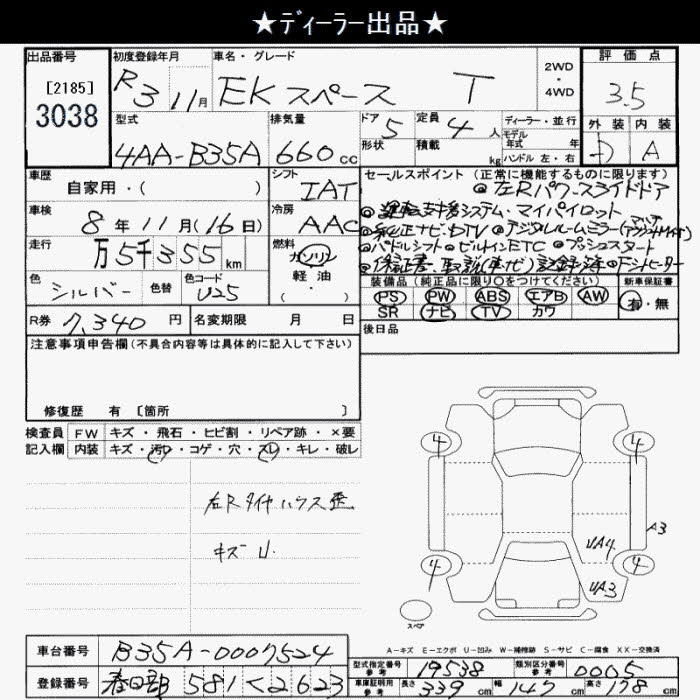 ★ディーラー出品★
出品番号
[2185]
3038
初度登録年月
R3 11月
車名・グレード
EKスペース T
2WD
・
4WD
評価点
3.5
外装 内装
A
型式
4AA-B35A
排気量
660 cc
ドア
5
形状
定員
4人
積載
kg
ディーラー・並行
モデル
年式 年
ハンドル 左・右
車歴
自家用・( )
シフト
IAT
車検
8年11月(16日)
冷房
AAC
走行
万5千355 km
燃料
ガソリン
軽油
・( )
色
シルバー
色替
色コード
U25
R券 7,340円
名変期限 月 日
セールスポイント(正常に機能するものに限ります)
◎左Rパワースライドドア
◎運転支援システム・マイパイロット
◎純正ナビ・DTV ◎デジタルルームミラー(アラウンドサイド)
◎パドルシフト ◎ビルインETC ◎プッシュスタート
◎保証書・取説(車・ナビ)記録簿 ◎Fシートヒーター
装備品(純正品に限り〇をつけてください)
PS PW ABS エアB AW
SR ナビ TV カワ
新車保証書
有・無
後日品
注意事項申告欄(不具合内容等は具体的に記入して下さい)
修復歴 有 [箇所 ]
検査員 FW キズ・飛石・ヒビ割・リペア跡・×要
記入欄 内装 キズ・汚レ・コゲ・穴・スレ・キレ・破レ
左Rタイヤハウス歪
キズ U.
4 4
A3
UA4
4 4
UA3
スペア
A-キズ E-エクボ U-凹み W-補修跡 S-サビ C-腐食 XX-交換済
車台番号 B35A-0007524
登録番号 春日部 581 く 2623
型式指定番号 参考 19538
類別区分番号 参考 0005
車庫証明用 参考 長さ 339 cm 幅 147 cm 高さ 178 cm